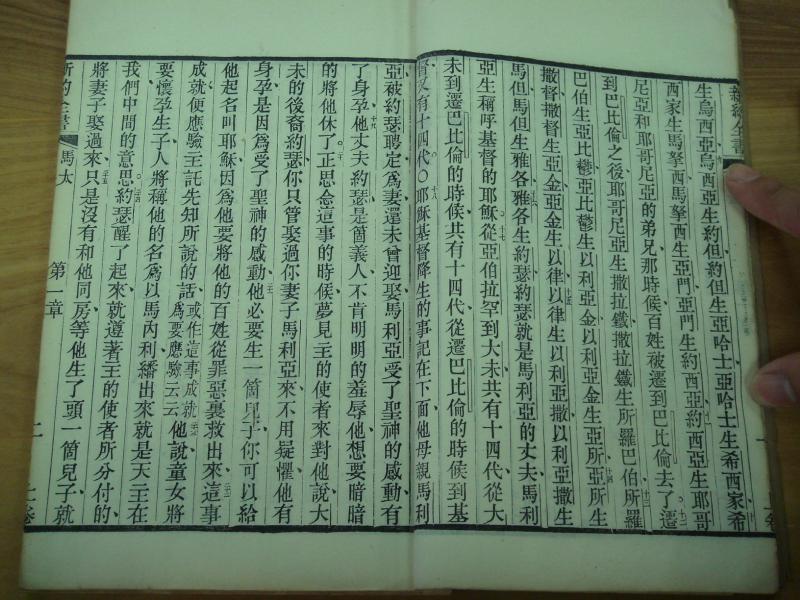 新約全書
上卷
生烏西亞烏西亞生約但約但生亞哈士亞哈士生希西家希
西家生馬拏西馬拏西生亞門亞門生約西亞約西亞生耶哥
尼亞和耶哥尼亞的弟兄那時候百姓被遷到巴比倫去了遷
到巴比倫之後耶哥尼亞生撒拉鐵撒拉鐵生所羅巴伯所羅
巴伯生亞比鬱亞比鬱生以利亞金以利亞金生亞所亞所生
撒督撒督生亞金亞金生以律以律生以利亞撒以利亞撒生
馬但馬但生雅各雅各生約瑟約瑟就是馬利亞的丈夫馬利
亞生稱呼基督的耶穌從亞伯拉罕到大未共有十四代從大
未到遷巴比倫的時候共有十四代從遷巴比倫的時候到基
督又有十四代〇耶穌基督降生的事記在下面他母親馬利
亞被約瑟聘定爲妻還未曾迎娶馬利亞受了聖神的感動有
了身孕他丈夫約瑟是箇義人不肯明明的羞辱他想要暗暗
的將他休了正思念這事的時候夢見主的使者來對他說大
未的後裔約瑟你只管娶過你妻子馬利亞來不用疑懼他有
身孕是因爲受了聖神的感動他必要生一箇兒子你可以給
他起名叫耶穌因爲他要將他的百姓從罪惡裏救出來這事
成就便應驗主託先知所說的話或作這事成就爲要應驗云云他說童女將
要懷孕生子人將稱他的名爲以馬內利繙出來就是天主在
我們中間的意思約瑟醒了起來就遵著主的使者所分付的
將妻子娶過來只是沒有和他同房等他生了頭一箇兒子就
新約全書
馬太
第一章
二
上卷